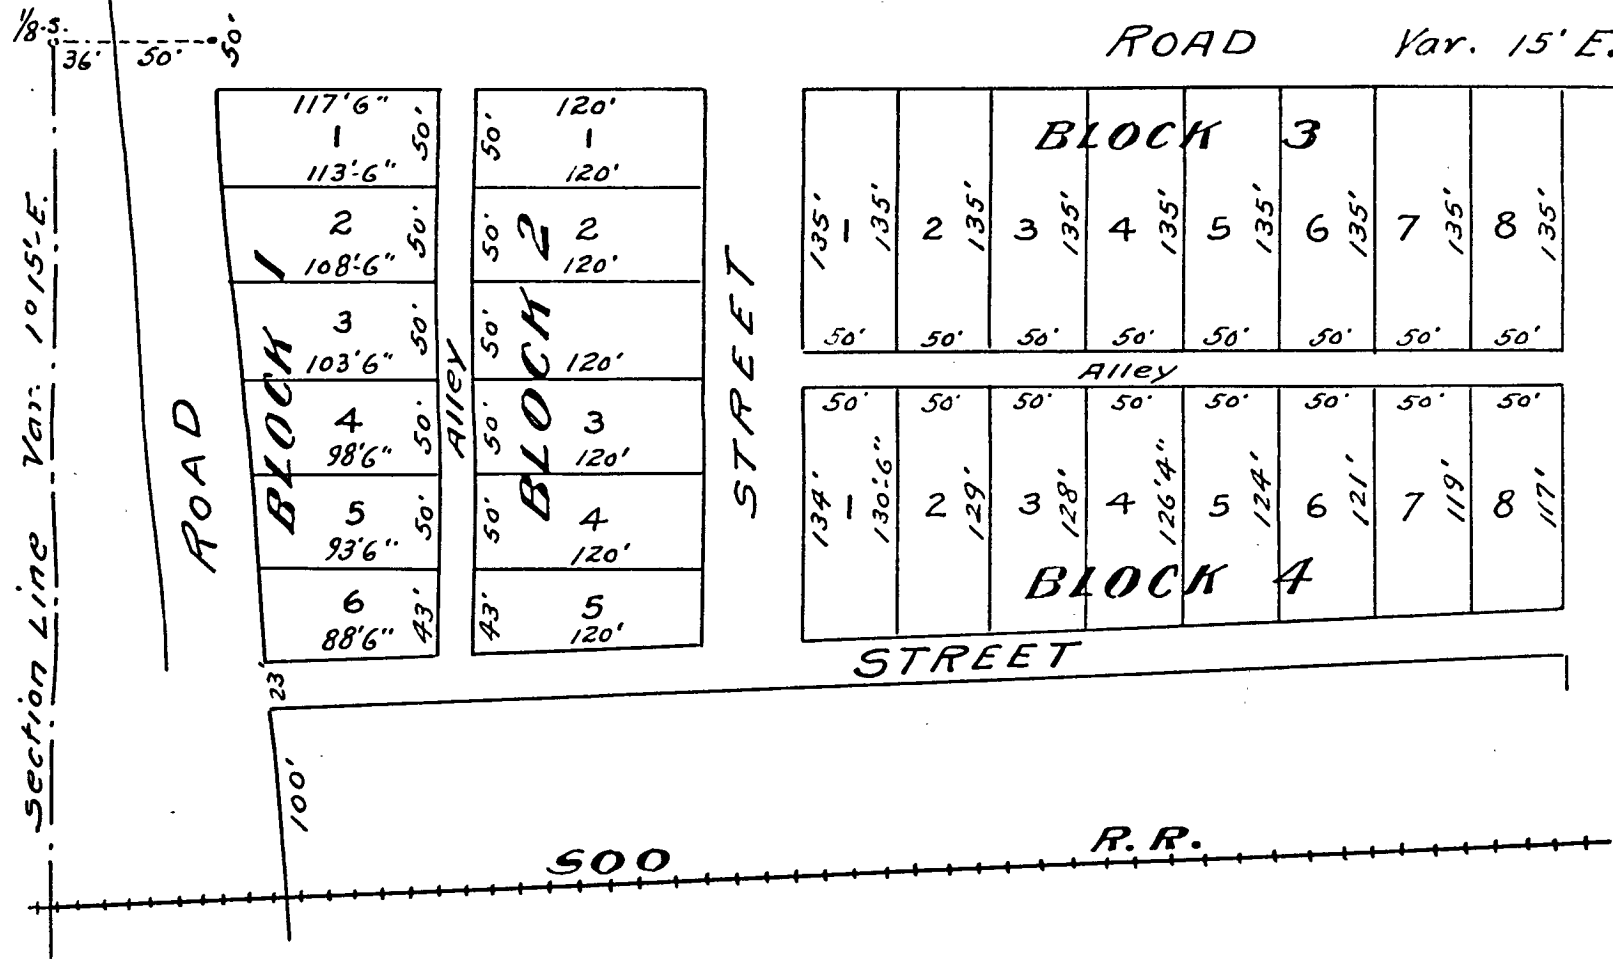 1/8-S.
36' 50' 50'
ROAD Var. 15' E.
Section Line Var. 1° 15'-E.
ROAD
BLOCK 1
117'6"
1
50'
113'-6"
2
50'
108'-6"
3
50'
103'6"
4
50'
98'6"
5
50'
93'6"
6
43'
88'6"
Alley
BLOCK 2
120'
50'
1
120'
50'
2
120'
50'
120'
50'
3
120'
50'
4
120'
43'
5
120'
STREET
BLOCK 3
135' 1 135' 2 135' 3 135' 4 135' 5 135' 6 135' 7 135' 8 135'
50' 50' 50' 50' 50' 50' 50' 50'
Alley
50' 50' 50' 50' 50' 50' 50' 50'
134' 1 130'-6" 2 129' 3 128' 4 126'4" 5 124' 6 121' 7 119' 8 117'
BLOCK 4
STREET
23'
100'
SOO R.R.